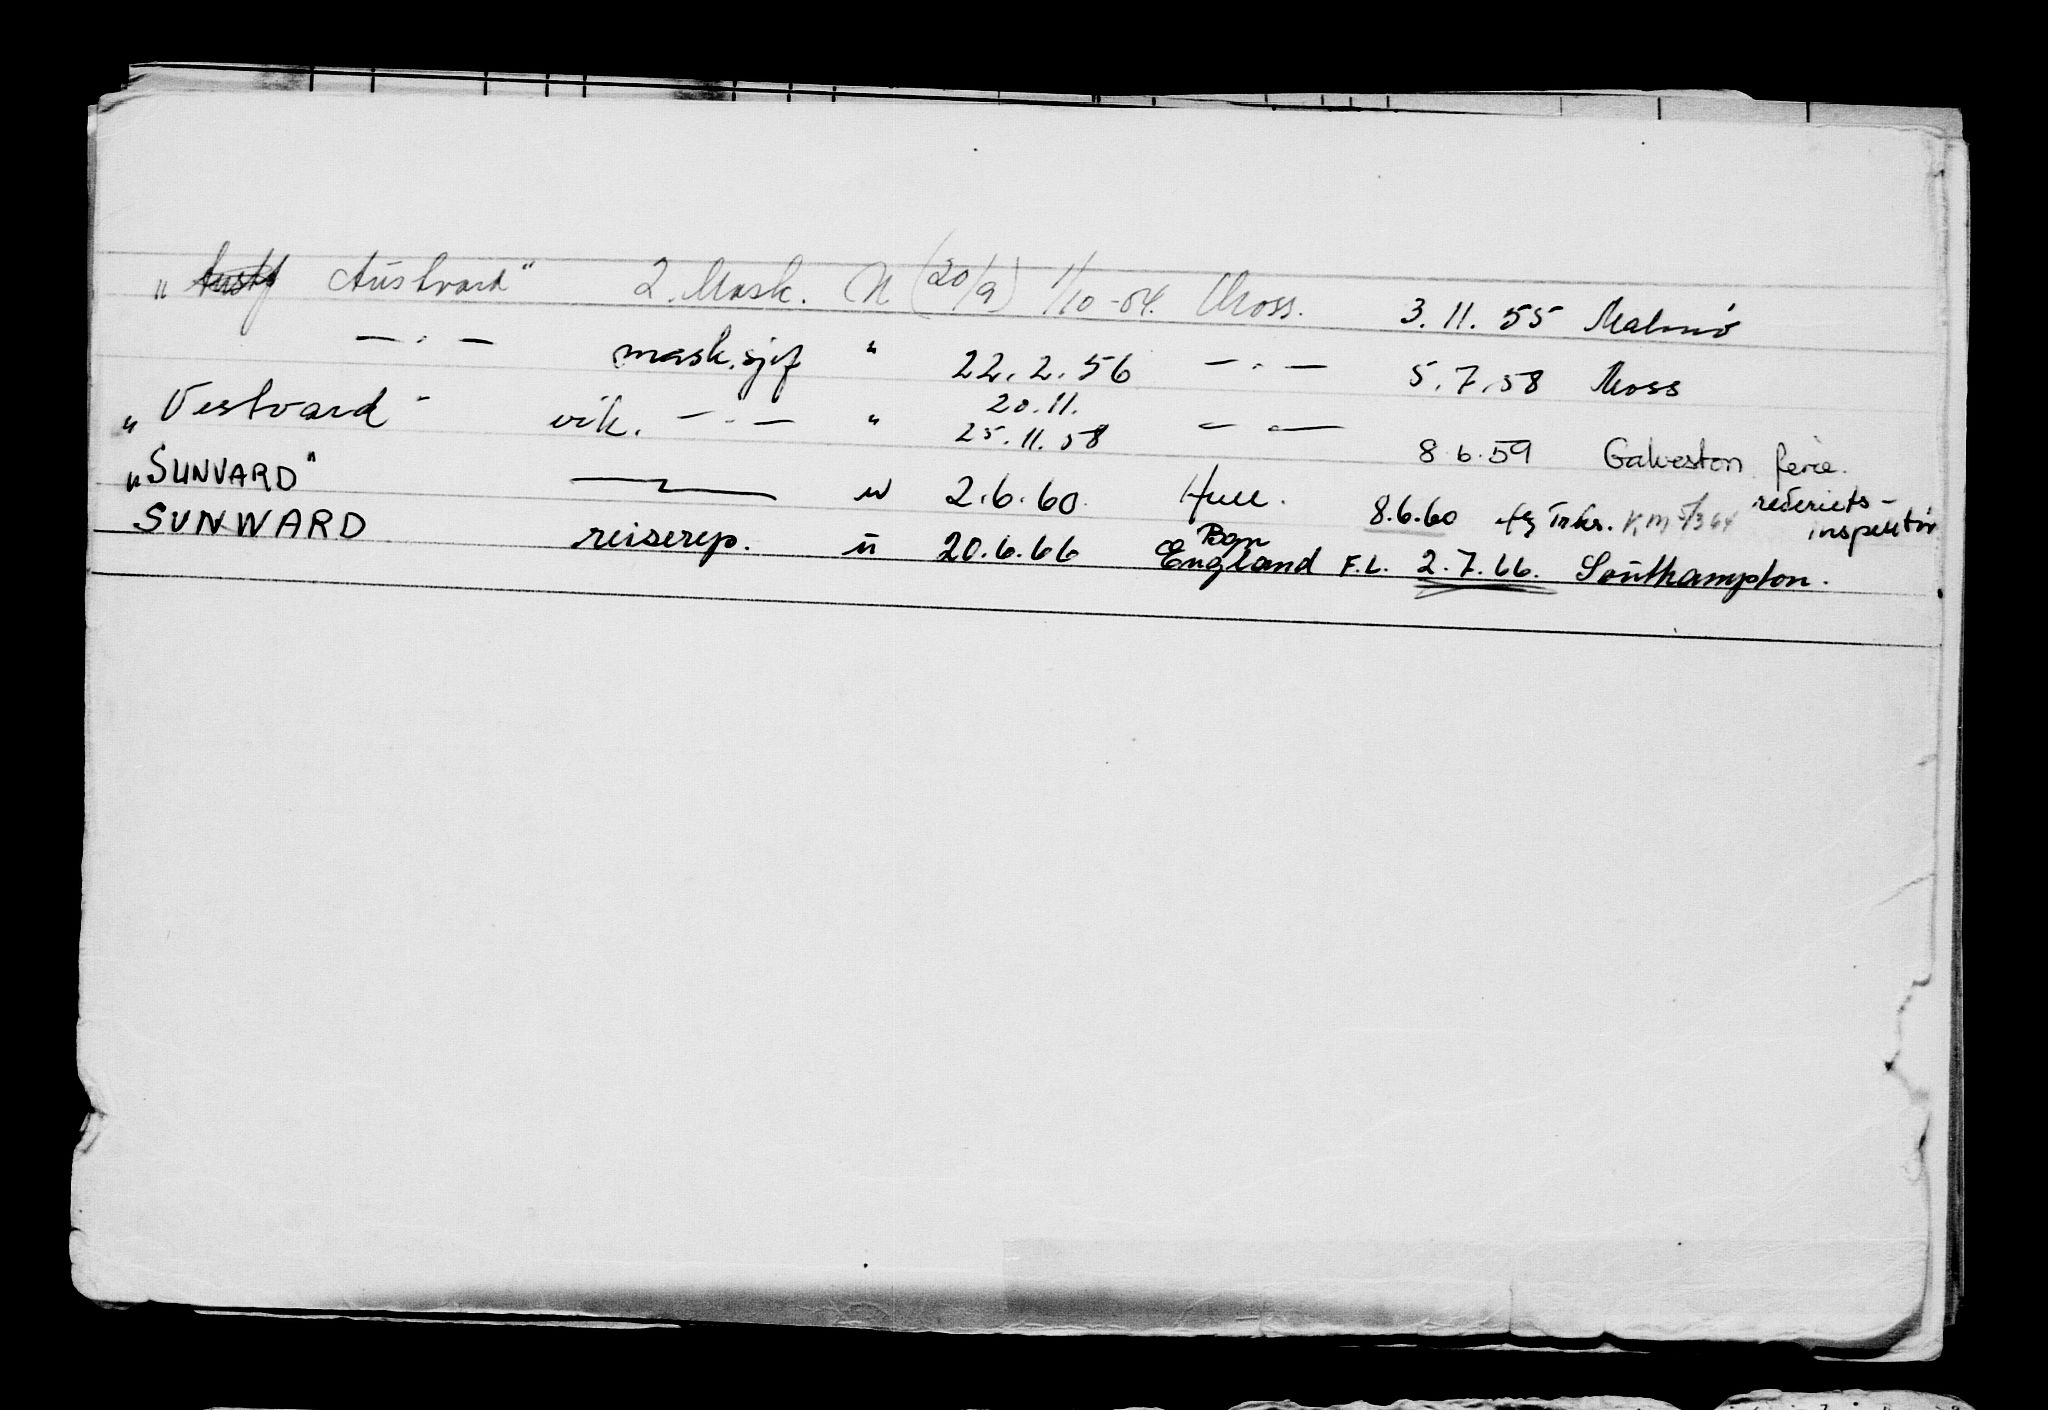 „ Austvard" 2. Mask. N (20/9) 1/10-54. Moss. 3.11.55 Malmö
— · — mask.sjef " 22.2.56 — · — 5.7.58 Moss
20.11.
„ Vestvard " vik. — · — " 25.11.58 — · — 8.6.59 Galveston ferie.
„SUNVARD" " 2.6.60 Hull. 8.6.60 Trkr. KM rederiets-
inspektør
Bgn
SUNWARD reiserep. " 20.6.66 England F.L. 2.7.66. Southampton.